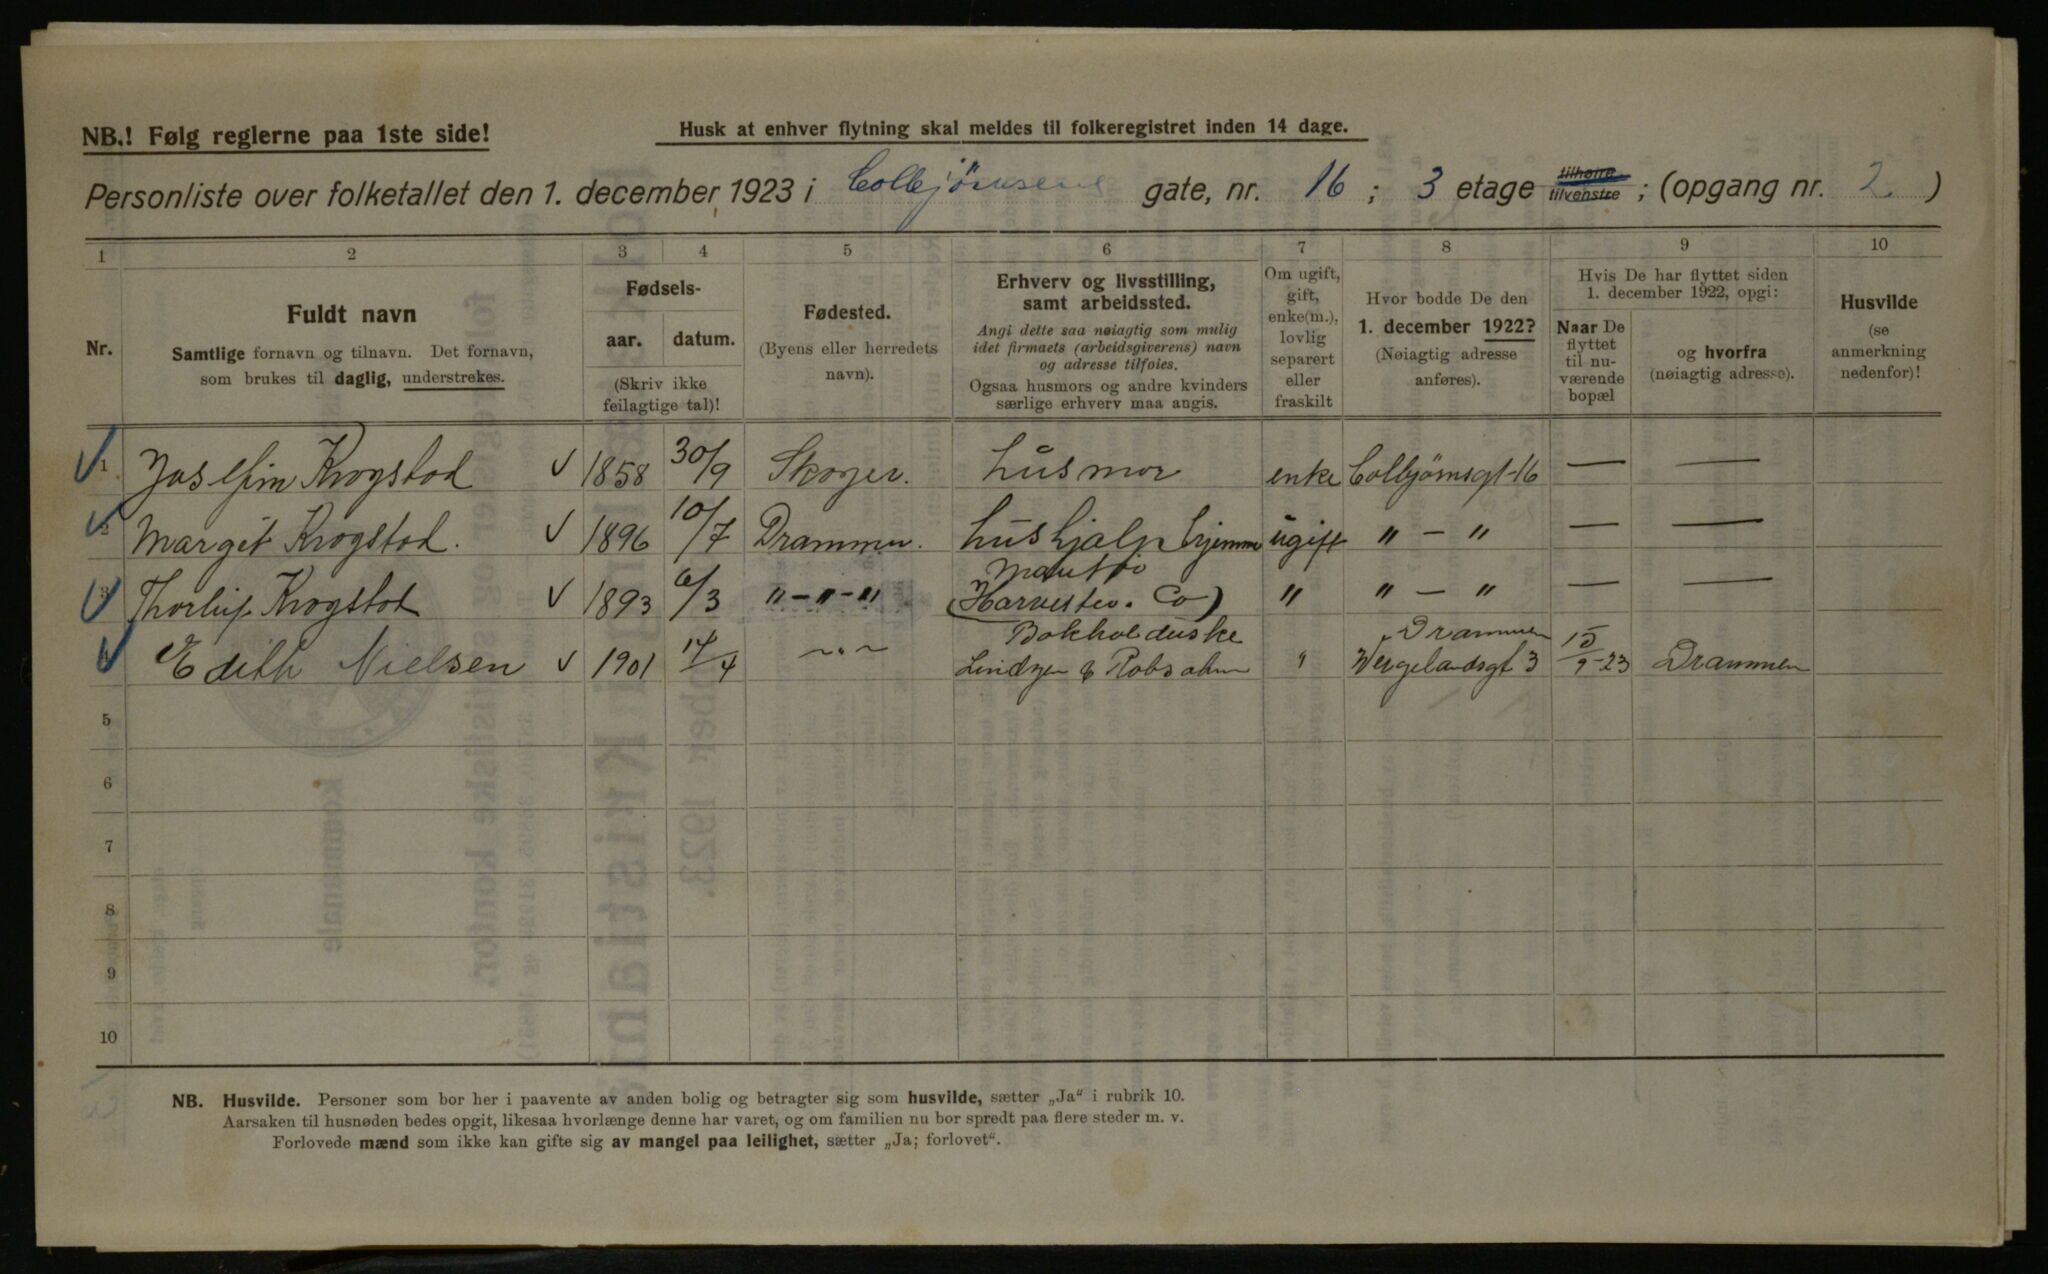 NB.! Følg reglerne paa 1ste side!
Husk at enhver flytning skal meldes til folkeregistret inden 14 dage.
Personliste over folketallet den 1. december 1923 i Colbjørnsens gate, nr. 16 ; 3 etage tilhøire tilvenstre ; (opgang nr. 2 )
1 2 3 4 5 6 7 8 9 10
Nr.
Fuldt navn
Samtlige fornavn og tilnavn. Det fornavn,
som brukes til daglig, understrekes.
Fødsels-
aar. datum.
(Skriv ikke
feilagtige tal)!
Fødested.
(Byens eller herredets
navn).
Erhverv og livsstilling,
samt arbeidssted.
Angi dette saa nøiagtig som mulig
idet firmaets (arbeidsgiverens) navn
og adresse tilføies.
Ogsaa husmors og andre kvinders
særlige erhverv maa angis.
Om ugift,
gift,
enke(m.),
lovlig
separert
eller
fraskilt
Hvor bodde De den
1. december 1922?
(Nøiagtig adresse
anføres).
Hvis De har flyttet siden
1. december 1922, opgi:
Naar De
flyttet
til nu-
værende
bopæl
og hvorfra
(nøiagtig adresse).
Husvilde
(se
anmerkning
nedenfor)!
1 Josefin Krogstad 1858 30/9 Skoger. husmor enke Colbjørnsgt-16 — —
2 Margit Krogstad. 1896 10/7 Drammen. hushjælp hjemme ugift " — " — —
3 Thorleif Krogstad 1893 6/3 "-"-" (Harvester. Co) " " — " — —
4 Edith Nielsen 1901 17/4 ~"~ Bokholderske
Lindgen & Robsahm " Drammen
Wergelandsgt 3 15/9-23 Drammen
5
6
7
8
9
10
NB. Husvilde. Personer som bor her i paavente av anden bolig og betragter sig som husvilde, sætter „Ja“ i rubrik 10.
Aarsaken til husnøden bedes opgit, likesaa hvorlænge denne har varet, og om familien nu bor spredt paa flere steder m. v.
Forlovede mænd som ikke kan gifte sig av mangel paa leilighet, sætter „Ja; forlovet“.